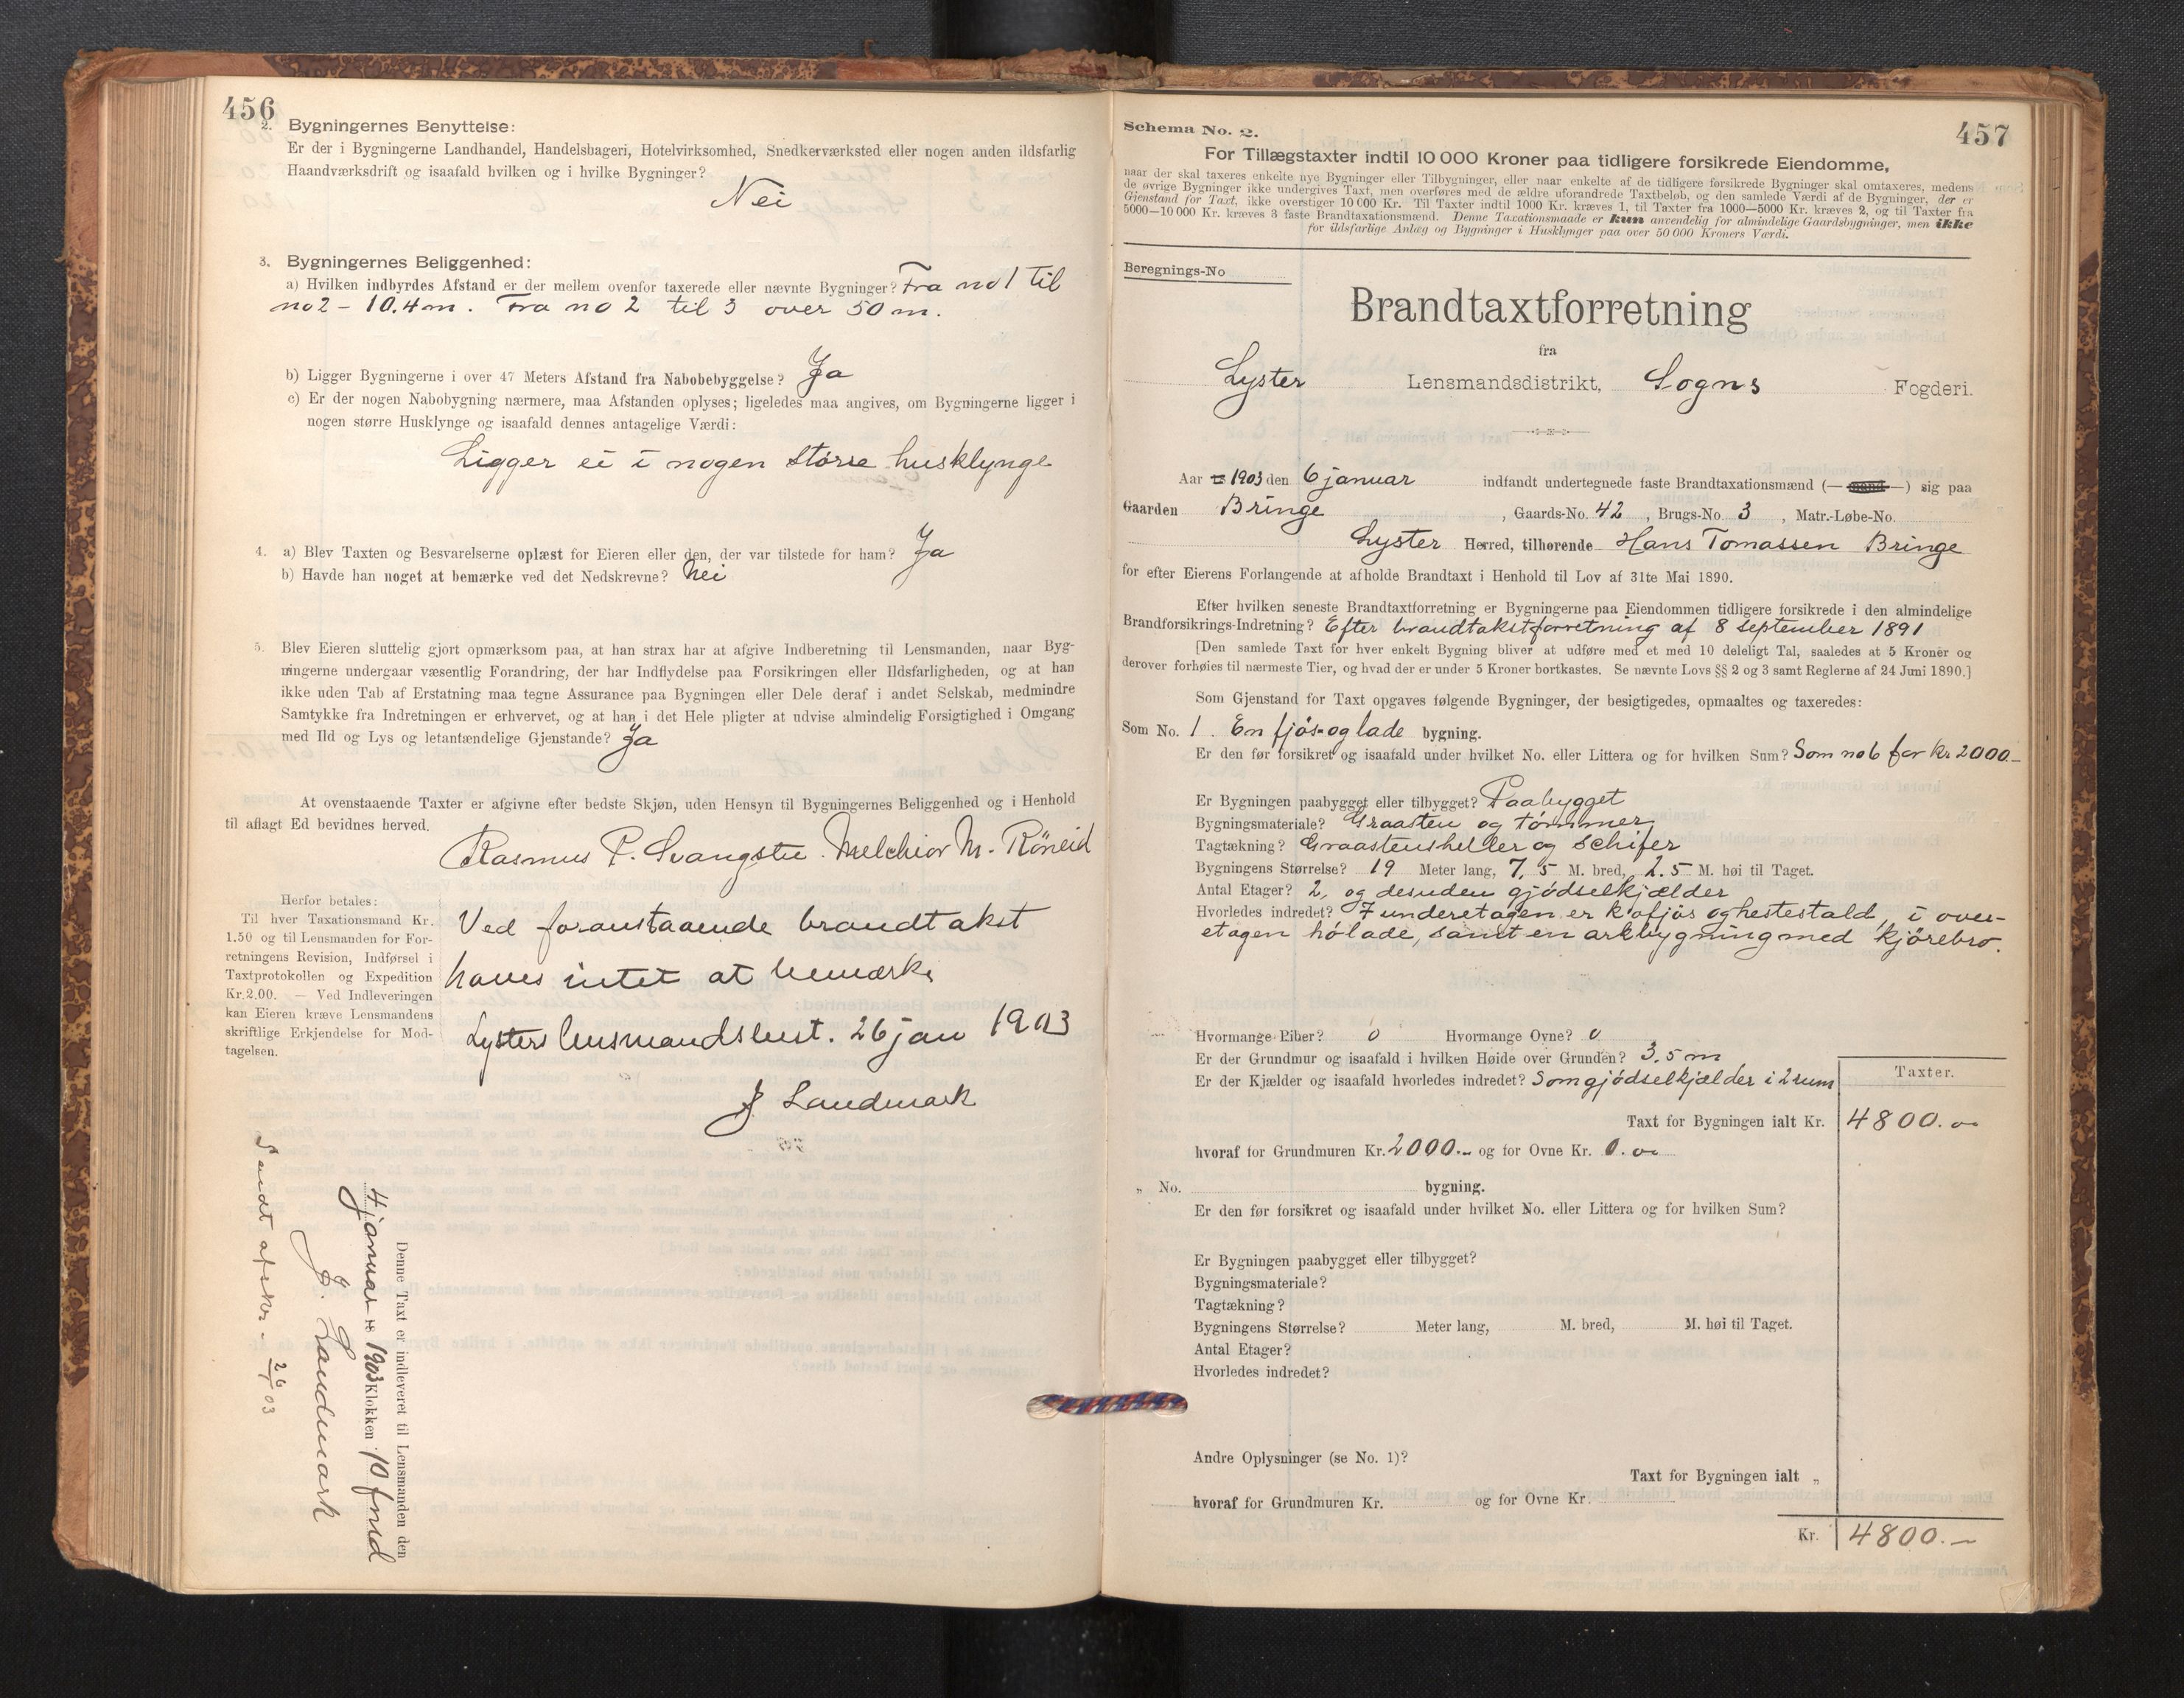 456
2. Bygningernes Benyttelse:
Er der i Bygningerne Landhandel, Handelsbageri, Hotelvirksomhed, Snedkerværksted eller nogen anden ildsfarlig
Haandværksdrift og isaafald hvilken og i hvilke Bygninger?
Nei
3. Bygningernes Beliggenhed:
a) Hvilken indbyrdes Afstand er der mellem ovenfor taxerede eller nævnte Bygninger? Fra no 1 til
no 2 - 10.4 m. Fra no 2 til 3 over 50 m.
b) Ligger Bygningerne i over 47 Meters Afstand fra Nabobebyggelse? Ja
c) Er der nogen Nabobygning nærmere, maa Afstanden oplyses; ligeledes maa angives, om Bygningerne ligger i
nogen større Husklynge og isaafald dennes antagelige Værdi:
Ligger ei i nogen større husklynge
4. a) Blev Taxten og Besvarelserne oplæst for Eieren eller den, der var tilstede for ham? Ja
b) Havde han noget at bemærke ved det Nedskrevne? Nei
5. Blev Eieren sluttelig gjort opmærksom paa, at han strax har at afgive Indberetning til Lensmanden, naar Byg-
ningerne undergaar væsentlig Forandring, der har Indflydelse paa Forsikringen eller Ildsfarligheden, og at han
ikke uden Tab af Erstatning maa tegne Assurance paa Bygningen eller Dele deraf i andet Selskab, medmindre
Samtykke fra Indretningen er erhvervet, og at han i det Hele pligter at udvise almindelig Forsigtighed i Omgang
med Ild og Lys og letantændelige Gjenstande? Ja
At ovenstaaende Taxter er afgivne efter bedste Skjøn, uden Hensyn til Bygningernes Beliggenhed og i Henhold
til aflagt Ed bevidnes herved.
Rasmus P. Svangstu. Melchior M. Røneid
Herfor betales:
Til hver Taxationsmand Kr.
1.50 og til Lensmanden for For-
retningens Revision, Indførsel i
Taxtprotokollen og Expedition
Kr. 2.00. — Ved Indleveringen
kan Eieren kræve Lensmandens
skriftlige Erkjendelse for Mod-
tagelsen.
Ved foranstaaende brandtakst
haves intet at bemærke
Lysters lensmandsbest. 26 jan 1903
J Landmark
Denne Taxt er indleveret til Lensmanden den
4 januar 1903 Klokken 10 fmd
J. Landmark
Sendt afskr. 26/1 03
Schema No. 2.
457
For Tillægstaxter indtil 10 000 Kroner paa tidligere forsikrede Eiendomme,
naar der skal taxeres enkelte nye Bygninger eller Tilbygninger, eller naar enkelte af de tidligere forsikrede Bygninger skal omtaxeres, medens
de øvrige Bygninger ikke undergives Taxt, men overføres med de ældre uforandrede Taxtbeløb, og den samlede Værdi af de Bygninger, der er
Gjenstand for Taxt, ikke overstiger 10 000 Kr. Til Taxter indtil 1000 Kr. kræves 1, til Taxter fra 1000—5000 Kr. kræves 2, og til Taxter fra
5000—10 000 Kr. kræves 3 faste Brandtaxationsmænd. Denne Taxationsmaade er kun anvendelig for almindelige Gaardsbygninger, men ikke
for ildsfarlige Anlæg og Bygninger i Husklynger paa over 50 000 Kroners Værdi.
Beregnings-No
Brandtaxtforretning
fra
Lyster Lensmandsdistrikt, Sogns Fogderi.
Aar 1903 den 6 januar indfandt undertegnede faste Brandtaxationsmænd (— mand —) sig paa
Gaarden Bringe, Gaards-No. 42, Brugs-No. 3, Matr.-Løbe-No.
Lyster Herred, tilhørende Hans Tomassen Bringe
for efter Eierens Forlangende at afholde Brandtaxt i Henhold til Lov af 31te Mai 1890.
Efter hvilken seneste Brandtaxtforretning er Bygningerne paa Eiendommen tidligere forsikrede i den almindelige
Brandforsikrings-Indretning? Efter brandtakstforretning af 8 september 1891
[Den samlede Taxt for hver enkelt Bygning bliver at udføre med et med 10 deleligt Tal, saaledes at 5 Kroner og
derover forhøies til nærmeste Tier, og hvad der er under 5 Kroner bortkastes. Se nævnte Lovs §§ 2 og 3 samt Reglerne af 24 Juni 1890.]
Som Gjenstand for Taxt opgaves følgende Bygninger, der besigtigedes, opmaaltes og taxeredes:
Som No. 1. En fjøs- og lade bygning.
Er den før forsikret og isaafald under hvilket No. eller Littera og for hvilken Sum? Som no 6 for kr 2000.-
Er Bygningen paabygget eller tilbygget? Paabygget
Bygningsmateriale? Graasten og tømmer
Tagtækning? Graastensheller og Schifer
Bygningens Størrelse? 19 Meter lang, 7,5 M. bred, 2.5 M. høi til Taget.
Antal Etager? 2, og desuden gjødselkjælder
Hvorledes indredet? I underetagen er kofjøs og hestestald, i over-
etagen hølade, samt en arkbygning med kjørebro.
Hvormange Piber? 0 Hvormange Ovne? 0
Er der Grundmur og isaafald i hvilken Høide over Grunden? 3.5 m
Er der Kjælder og isaafald hvorledes indredet? Som gjødselkjælder i 2 rum
Taxter.
Taxt for Bygningen ialt Kr. 4800.00
hvoraf for Grundmuren Kr. 2000.- og for Ovne Kr. 0.00
„ No. bygning.
Er den før forsikret og isaafald under hvilket No. eller Littera og for hvilken Sum?
Er Bygningen paabygget eller tilbygget?
Bygningsmateriale?
Tagtækning?
Bygningens Størrelse? Meter lang, M. bred, M. høi til Taget.
Antal Etager?
Hvorledes indredet?
Andre Oplysninger (se No. 1)?
Taxt for Bygningen ialt „
hvoraf for Grundmuren Kr. og for Ovne Kr.
Kr. 4800.-